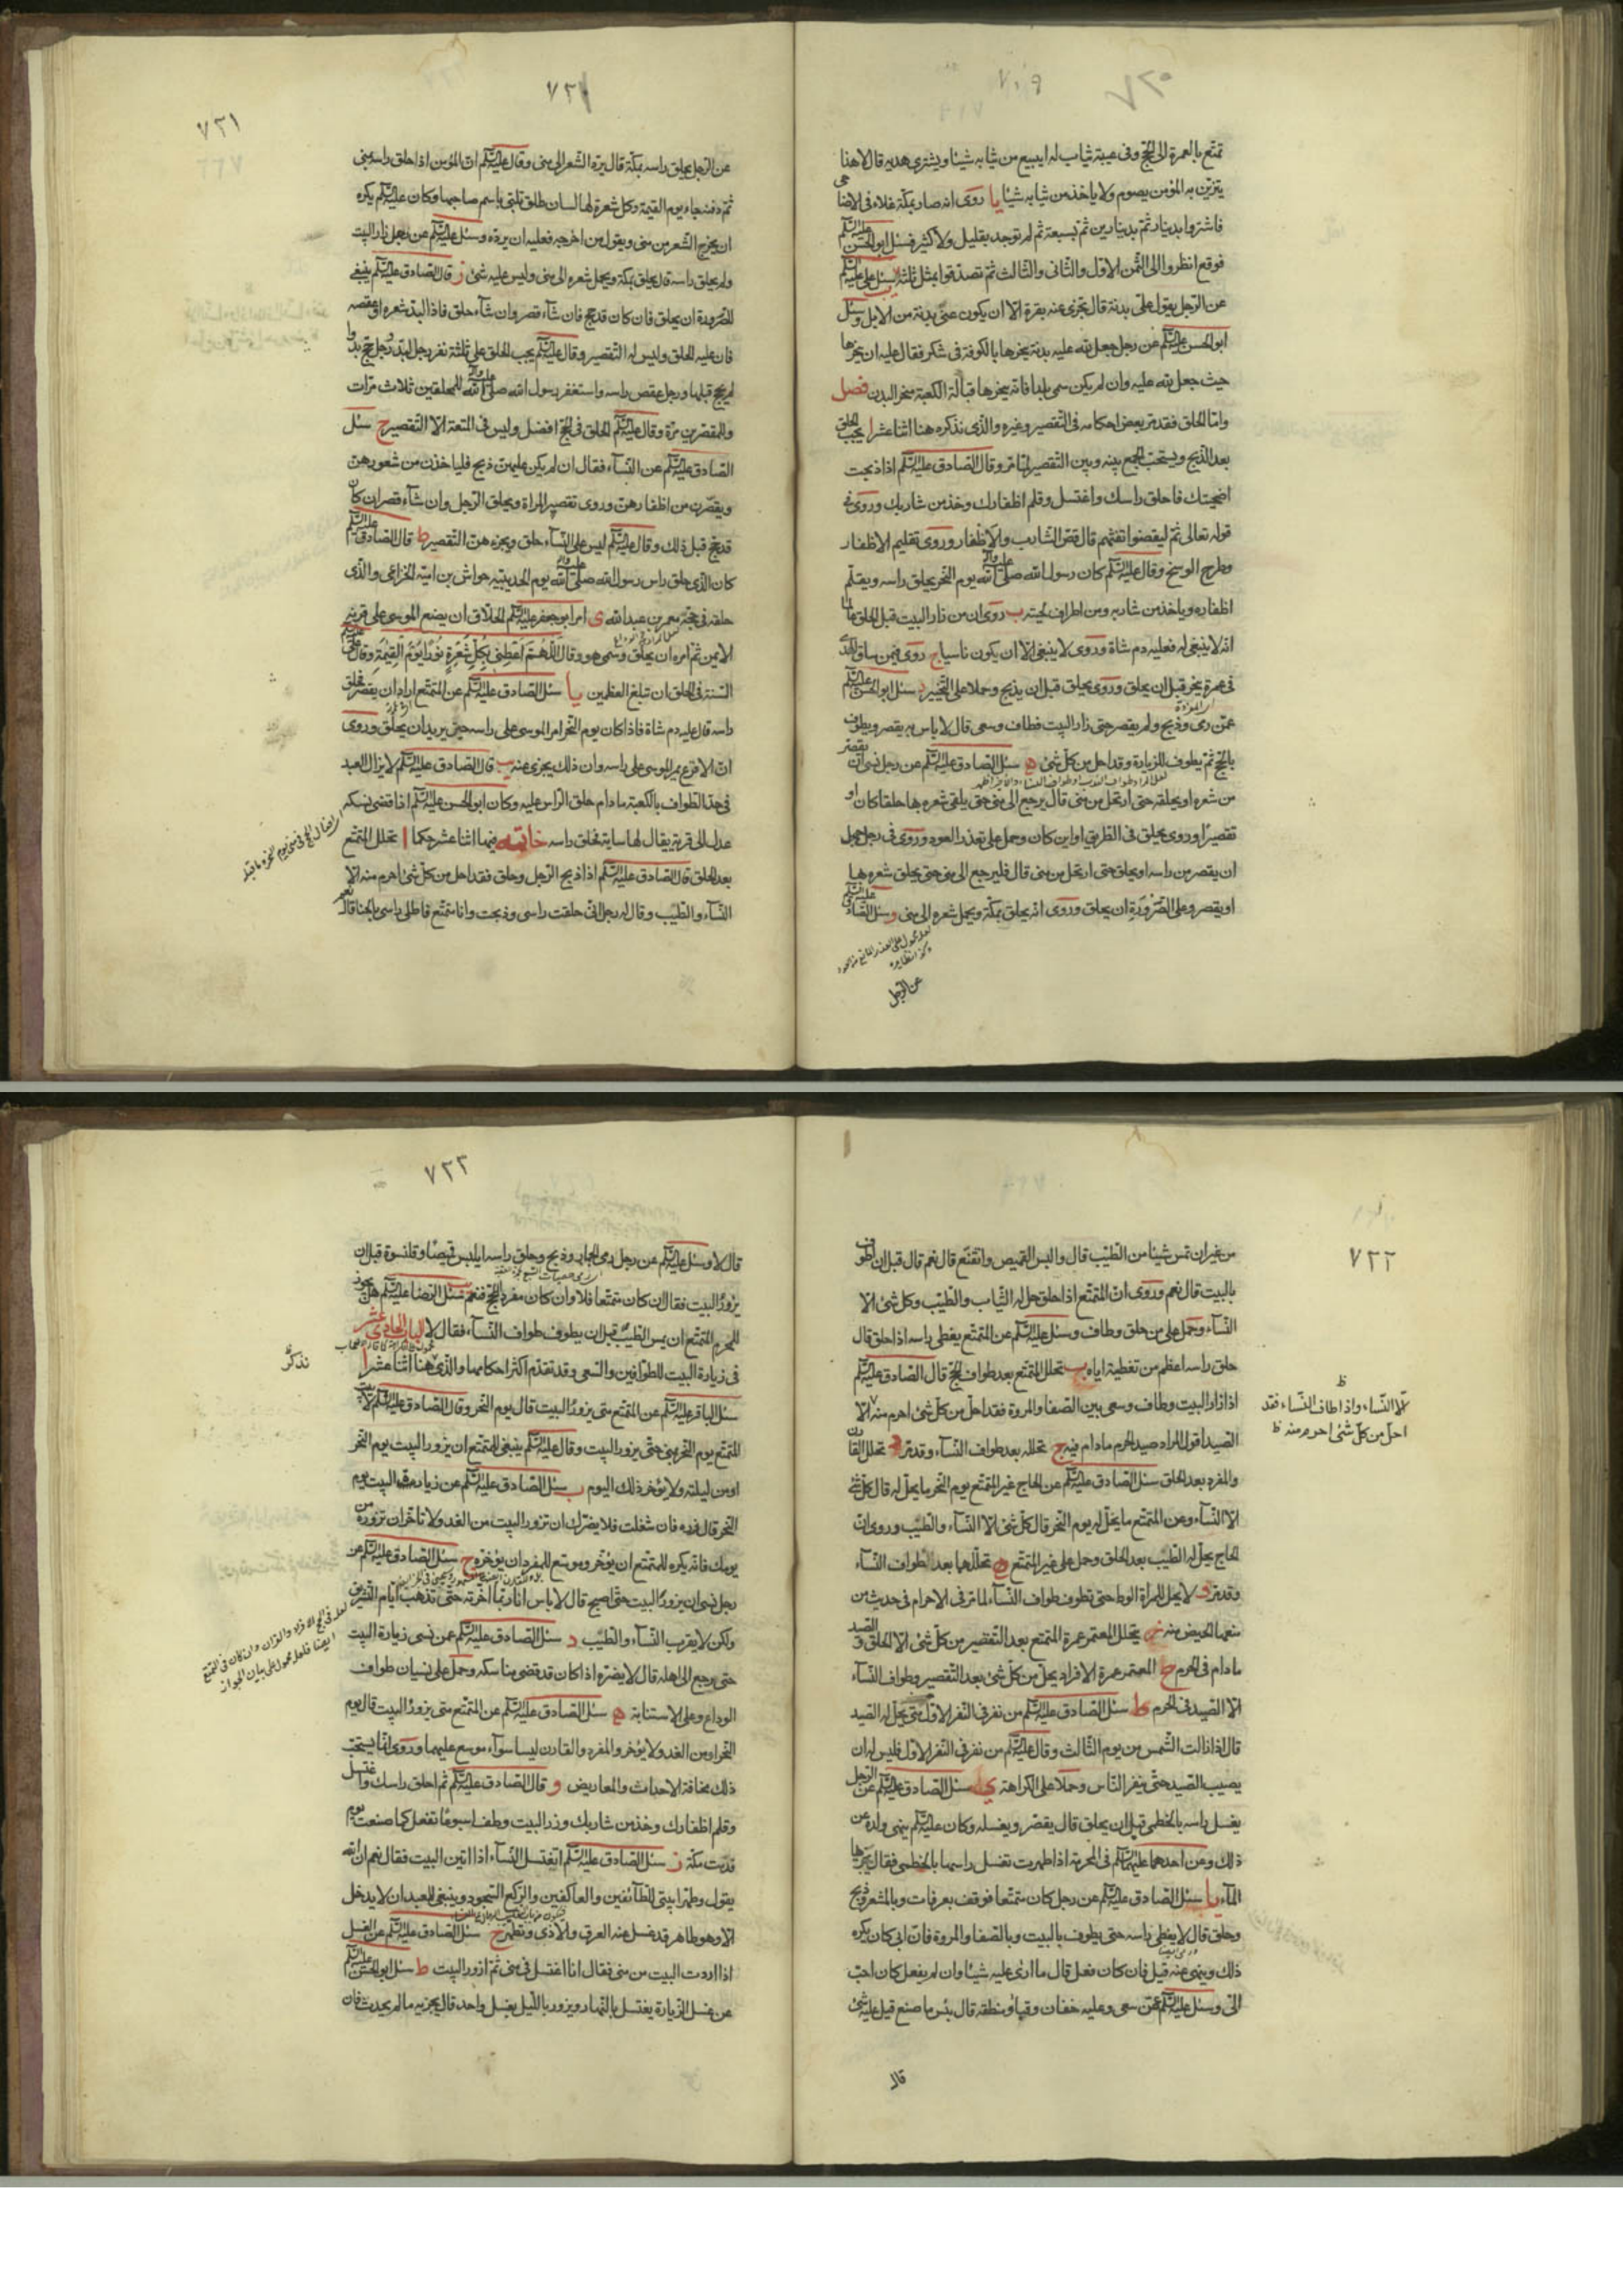 ٧٢٠
تمتّع بالعمرة الى الحجّ وفى عيبته ثياب له ايبيع من ثيابه شيئا ويشترى هديه قال لا هذا
يتزيّن به المؤمن يصوم ولا ياخذ من ثيابه شيئا يا روى انه صار بمكّة غلاء فى الاضاحى
فاشتروا بدينار ثمّ بدينارين ثم بسبعة ثم لم توجد بقليل ولا كثير فسئل ابو الحسن عليه السّلم
فوقع انظروا الى الثمن الاوّل والثّانى والثّالث ثم تصدّقوا بمثل ثلثه يب سئل على عليه السّلم
عن الرّجل يقول علىّ بدنة قال تجزى عنه بقرة الّا ان يكون عنى بدنة من الابل وسئل
ابو الحسن عليه السّلم عن رجل جعل لله عليه بدنة ينحرها بالكوفة فى شكر فقال عليه ان ينحرها
حيث جعل لله عليه وان لم يكن سمى بلدا فانه ينحرها قبالة الكعبة منحر البدن فصل
وامّا الحلق فقد مرّ بعض احكامه فى التّقصير وغيره والّذى نذكره هنا اثنا عشر ا يجب الحلق
بعد الذّبح ويستحبّ الجمع بينه وبين التّقصير لما مرّ وقال الصّادق عليه السّلم اذا ذبحت
اضحيتك فاحلق راسك واغتسل وقلم اظفارك وخذ من شاربك وروى فى
قوله تعالى ثمّ ليقضوا تفثهم قال قصّ الشّارب والاظفار وروى تقليم الاظفار
وطرح الوسخ وقال عليه السّلم كان رسول الله صلى الله عليه وآله يوم النّحر يحلق راسه ويقلّم
اظفاره وياخذ من شاربه ومن اطراف لحيته ب روى ان من زار البيت قبل الحلق عالما
انّه لا ينبغى له فعليه دم شاة وروى لا ينبغى الا ان يكون ناسيا ج روى فيمن ساق الهدى
فى عمرة ينحر قبل ان يحلق وروى يحلق قبل ان يذبح وحملا على التّخيير د سئل ابو الحسن عليه السّلم
عمّن رمى وذبح ولم يقصر حتى زار البيت فطاف وسعى قال لا باس به يقصر ويطوف
بالحجّ ثمّ يطوف للزيارة وقد احلّ من كلّ شئ ه سئل الصّادق عليه السّلم عن رجل نسى ان يقصر
من شعره او يحلقه حتى ارتحل من منى قال يرجع الى منى حتى يلقى شعره بها حلقا كان او
تقصيرا وروى يحلق فى الطّريق او اين كان وحمل على تعذّر العود وروى فى رجل جهل
ان يقصر من راسه او يحلق حتى ارتحل من منى قال فليرجع الى منى حتى يحلق شعره بها
او يقصر وعلى الصّرورة ان يحلق وروى انه يحلق بمكّة ويحمل شعره الى منى و سئل الصّادق عليه السّلم
عن الرّجل
٧٢١
٧٢١
عن الرّجل يحلق راسه بمكّة قال يردّ الشّعر الى منى وقال عليه السّلم انّ المؤمن اذا حلق راسه بمنى
ثمّ دفنه جاء يوم القيمة وكل شعرة لها لسان طلق تلبّى باسم صاحبها وكان عليه السّلم يكره
ان يخرج الشّعر من منى ويقول من اخرجه فعليه ان يردّه وسئل عليه السّلم عن رجل زار البيت
ولم يحلق راسه قال يحلق بمكة ويحمل شعره الى منى وليس عليه شئ ز قال الصّادق عليه السّلم ينبغى
للصّرورة ان يحلق فان كان قد حج فان شآء قصر وان شآء حلق فاذا لبّد شعره او عقصه
فانّ عليه الحلق وليس له التّقصير وقال عليه السّلم يجب الحلق على ثلثة نفر رجل لبّد ورجل حجّ بدوا
لم يحج قبلها ورجل عقص راسه واستغفر رسول الله صلى الله عليه وآله للمحلقين ثلاث مرّات
وللمقصّرين مرّة وقال عليه السّلم الحلق فى الحجّ افضل وليس فى المتعة الّا التّقصير ح سئل
الصّادق عليه السّلم عن النّسآء فقال ان لم يكن عليهنّ ذبح فلياخذن من شعورهنّ
ويقصّرن من اظفارهنّ وروى تقصير المراة ويحلق الرّجل وان شآء قصر ان كان
قد حج قبل ذلك وقال عليه السّلم ليس على النّسآء حلق ويجزيهنّ التّقصير ط قال الصّادق عليه السّلم
كان الّذى حلق راس رسول الله صلى الله عليه وآله يوم الحديبيّة خراش بن اميّة الخزاعى والّذى
حلقه فى حجّته معمر بن عبد الله ى امر ابو جعفر عليه السّلم الحلّاق ان يضع الموسى على قرنه
الايمن ثمّ امره ان يحلق وسمّى هو وقال اللّهمّ اعطنى بكلّ شعرة نورا يوم القيمة وقال على عليه السّلم
السّنّة فى الحلق ان تبلغ العظمين يا سئل الصّادق عليه السّلم عن المتمتّع اراد ان يقصر فحلق
راسه قال عليه دم شاة فاذا كان يوم النّحر امر الموسى على راسه حين يريد ان يحلق وروى
انّ الاقرع يمر الموسى على راسه وان ذلك يجزى عنه يب قال الصّادق عليه السّلم لا يزال العبد
فى حدّ الطّواف بالكعبة ما دام حلق الرّاس عليه وكان ابو الحسن عليه السّلم اذا قضى نسكه
عدل الى قرية يقال لها ساية فحلق راسه خاتمه فيها اثنا عشر حكما ا تحلل المتمتّع
بعد الحلق قال الصّادق عليه السّلم اذا ذبح الرّجل وحلق فقد احل من كلّ شئ احرم منه الّا
النّسآء والطّيب وقال له رجل انّى حلقت راسى وذبحت وانا متمتّع فاطلى راسى بالحنا قال نعم
٧٢٢
من غير ان تمس شيئا من الطّيب قال والبس القميص واتقنّع قال نعم قال قبل ان اطوف
بالبيت قال نعم وروى انّ المتمتّع اذا حلق حل له الثّياب والطّيب وكل شئ الّا
النّسآء وحمل على من حلق وطاف وسئل عليه السّلم عن المتمتّع يغطى راسه اذا حلق قال
حلق راسه اعظم من تغطيته اياه ب تحلل المتمتّع بعد طواف الحجّ قال الصّادق عليه السّلم
اذا زار البيت وطاف وسعى بين الصّفا والمروة فقد احلّ من كلّ شئ احرم منه الّا
الصّيد اقول المراد صيد الحرم ما دام فيه ج تحلله بعد طواف النّسآء وقد مرّ د تحلل القارن
والمفرد بعد الحلق سئل الصّادق عليه السّلم عن الحاج غير المتمتّع يوم النّحر ما يحلّ له قال كلّ شئ
الّا النّسآء وعن المتمتّع ما يحلّ له يوم النّحر قال كلّ شئ الّا النّسآء والطّيب وروى انّ
الحاج يحلّ له الطّيب بعد الحلق وحمل على غير المتمتّع ه تحللهما بعد الطواف النّسآء
وقد مرّ و لا يحل للمراة الوطا حتى تطوف طواف النّسآء لما مرّ فى الاحرام فى حديث من
منعها الحيض منه ز يتحلل المعتمر عمرة التمتع بعد التّقصير من كلّ شئ الّا الحلق والصّيد
ما دام فى الحرم ح المعتمر عمرة الافراد يحل من كلّ شئ بعد التّقصير وطواف النّسآء
الّا الصّيد فى الحرم ط سئل الصّادق عليه السّلم من نفر فى النّفر الاوّل متى يحلّ له الصّيد
قال اذا زالت الشّمس من يوم الثّالث وقال عليه السّلم من نفر فى النّفر الاوّل فليس له ان
يصيب الصّيد حتّى ينفر النّاس وحملا على الكراهة ى سئل الصّادق عليه السّلم عن الرّجل
يغسل راسه بالخطمى قبل ان يحلق قال يقصّر ويغسله وكان عليه السّلم ينهى ولده عن
ذلك وعن احدهما عليهما السّلم فى المحرمة اذا طهرت تغسل راسها بالخطمى فقال يجزيها
المآء يا سئل الصّادق عليه السّلم عن رجل كان متمتّعا فوقف بعرفات وبالمشعر وذبح
وحلق قال لا يغطى راسه حتى يطوف بالبيت وبالصّفا والمروة فانّ ابى كان يكره
ذلك وينهى عنه قيل فان كان فعل قال ما ارى عليه شيئا وان لم يفعل كان احبّ
الىّ وسئل عليه السّلم عمّن سعى وعليه خفان وقباء ومنطقة قال بئس ما صنع قيل عليه شئ
قال
الّا النّساء واذا طاف النّساء فقد
احلّ من كلّ شئ احرم منه ظ
٧٢٣
قال لا وسئل عليه السّلم عن رجل رمى الجمار وذبح وحلق راسه ايلبس قميصا وقلنسوة قبل ان
يزور البيت فقال ان كان متمتّعا فلا وان كان مفردا للحجّ فنعم يب سئل الرّضا عليه السّلم هل يجوز
للمحرم المتمتّع ان يمس الطّيب قبل ان يطوف طواف النّسآء فقال لا الباب الحادى عشر
فى زيارة البيت للطوافين والسّعى وقد تقدّم اكثر احكامها والّذى نذكر هنا اثنا عشر ا
سئل الباقر عليه السّلم عن المتمتّع متى يزور البيت قال يوم النّحر وقال الصّادق عليه السّلم لا يبيت
المتمتّع يوم النّحر بمنى حتّى يزور البيت وقال عليه السّلم ينبغى للمتمتّع ان يزور البيت يوم النّحر
او من ليلته ولا يؤخر ذلك اليوم ب سئل الصّادق عليه السّلم عن زيارة البيت يوم
النّحر قال زره فان شغلت فلا يضرّك ان تزور البيت من الغد ولا تاخّر ان تزوره من
يومك فانّه يكره للمتمتّع ان يؤخّره وموسّع للمفرد ان يؤخّره ج سئل الصّادق عليه السّلم عن
رجل نسى ان يزور البيت حتّى اصبح قال لا باس انا ربّما اخّرته حتّى تذهب ايّام التّشريق
ولكن لا يقرب النّسآء والطّيب د سئل الصّادق عليه السّلم عمن نسى زيارة البيت
حتى يرجع الى اهله قال لا يضرّه اذا كان قد قضى مناسكه وحمل على نسيان طواف
الوداع وعلى الاستنابة ه سئل الصّادق عليه السّلم عن المتمتّع متى يزور البيت قال يوم
النّحر او من الغد ولا يؤخر والمفرد والقارن ليسا سوآء موسع عليهما وروى انّما يستحبّ
ذلك مخافة الاحداث والمعاريض و قال الصّادق عليه السّلم ثم احلق راسك واغتسل
وقلم اظفارك وخذ من شاربك وزر البيت وطف اسبوعا تفعل كما صنعت يوم
قدمت مكّة ز سئل الصّادق عليه السّلم ايغتسل النّسآء اذا اتين البيت فقال نعم انّ الله
يقول وطهّرا بيتى للطّآئفين والعاكفين والرّكع السّجود وينبغى للعبد ان لا يدخل
الّا وهو طاهر قد غسل عنه العرق والاذى وتطهّر ح سئل الصّادق عليه السّلم عن الغسل
اذا اردت البيت من منى فقال انا اغتسل فى منى ثم ازور البيت ط سئل ابو الحسن عليه السّلم
عن غسل الزّيارة يغتسل بالنّهار ويزور باللّيل بغسل واحد قال يجزيه ما لم يحدث فان